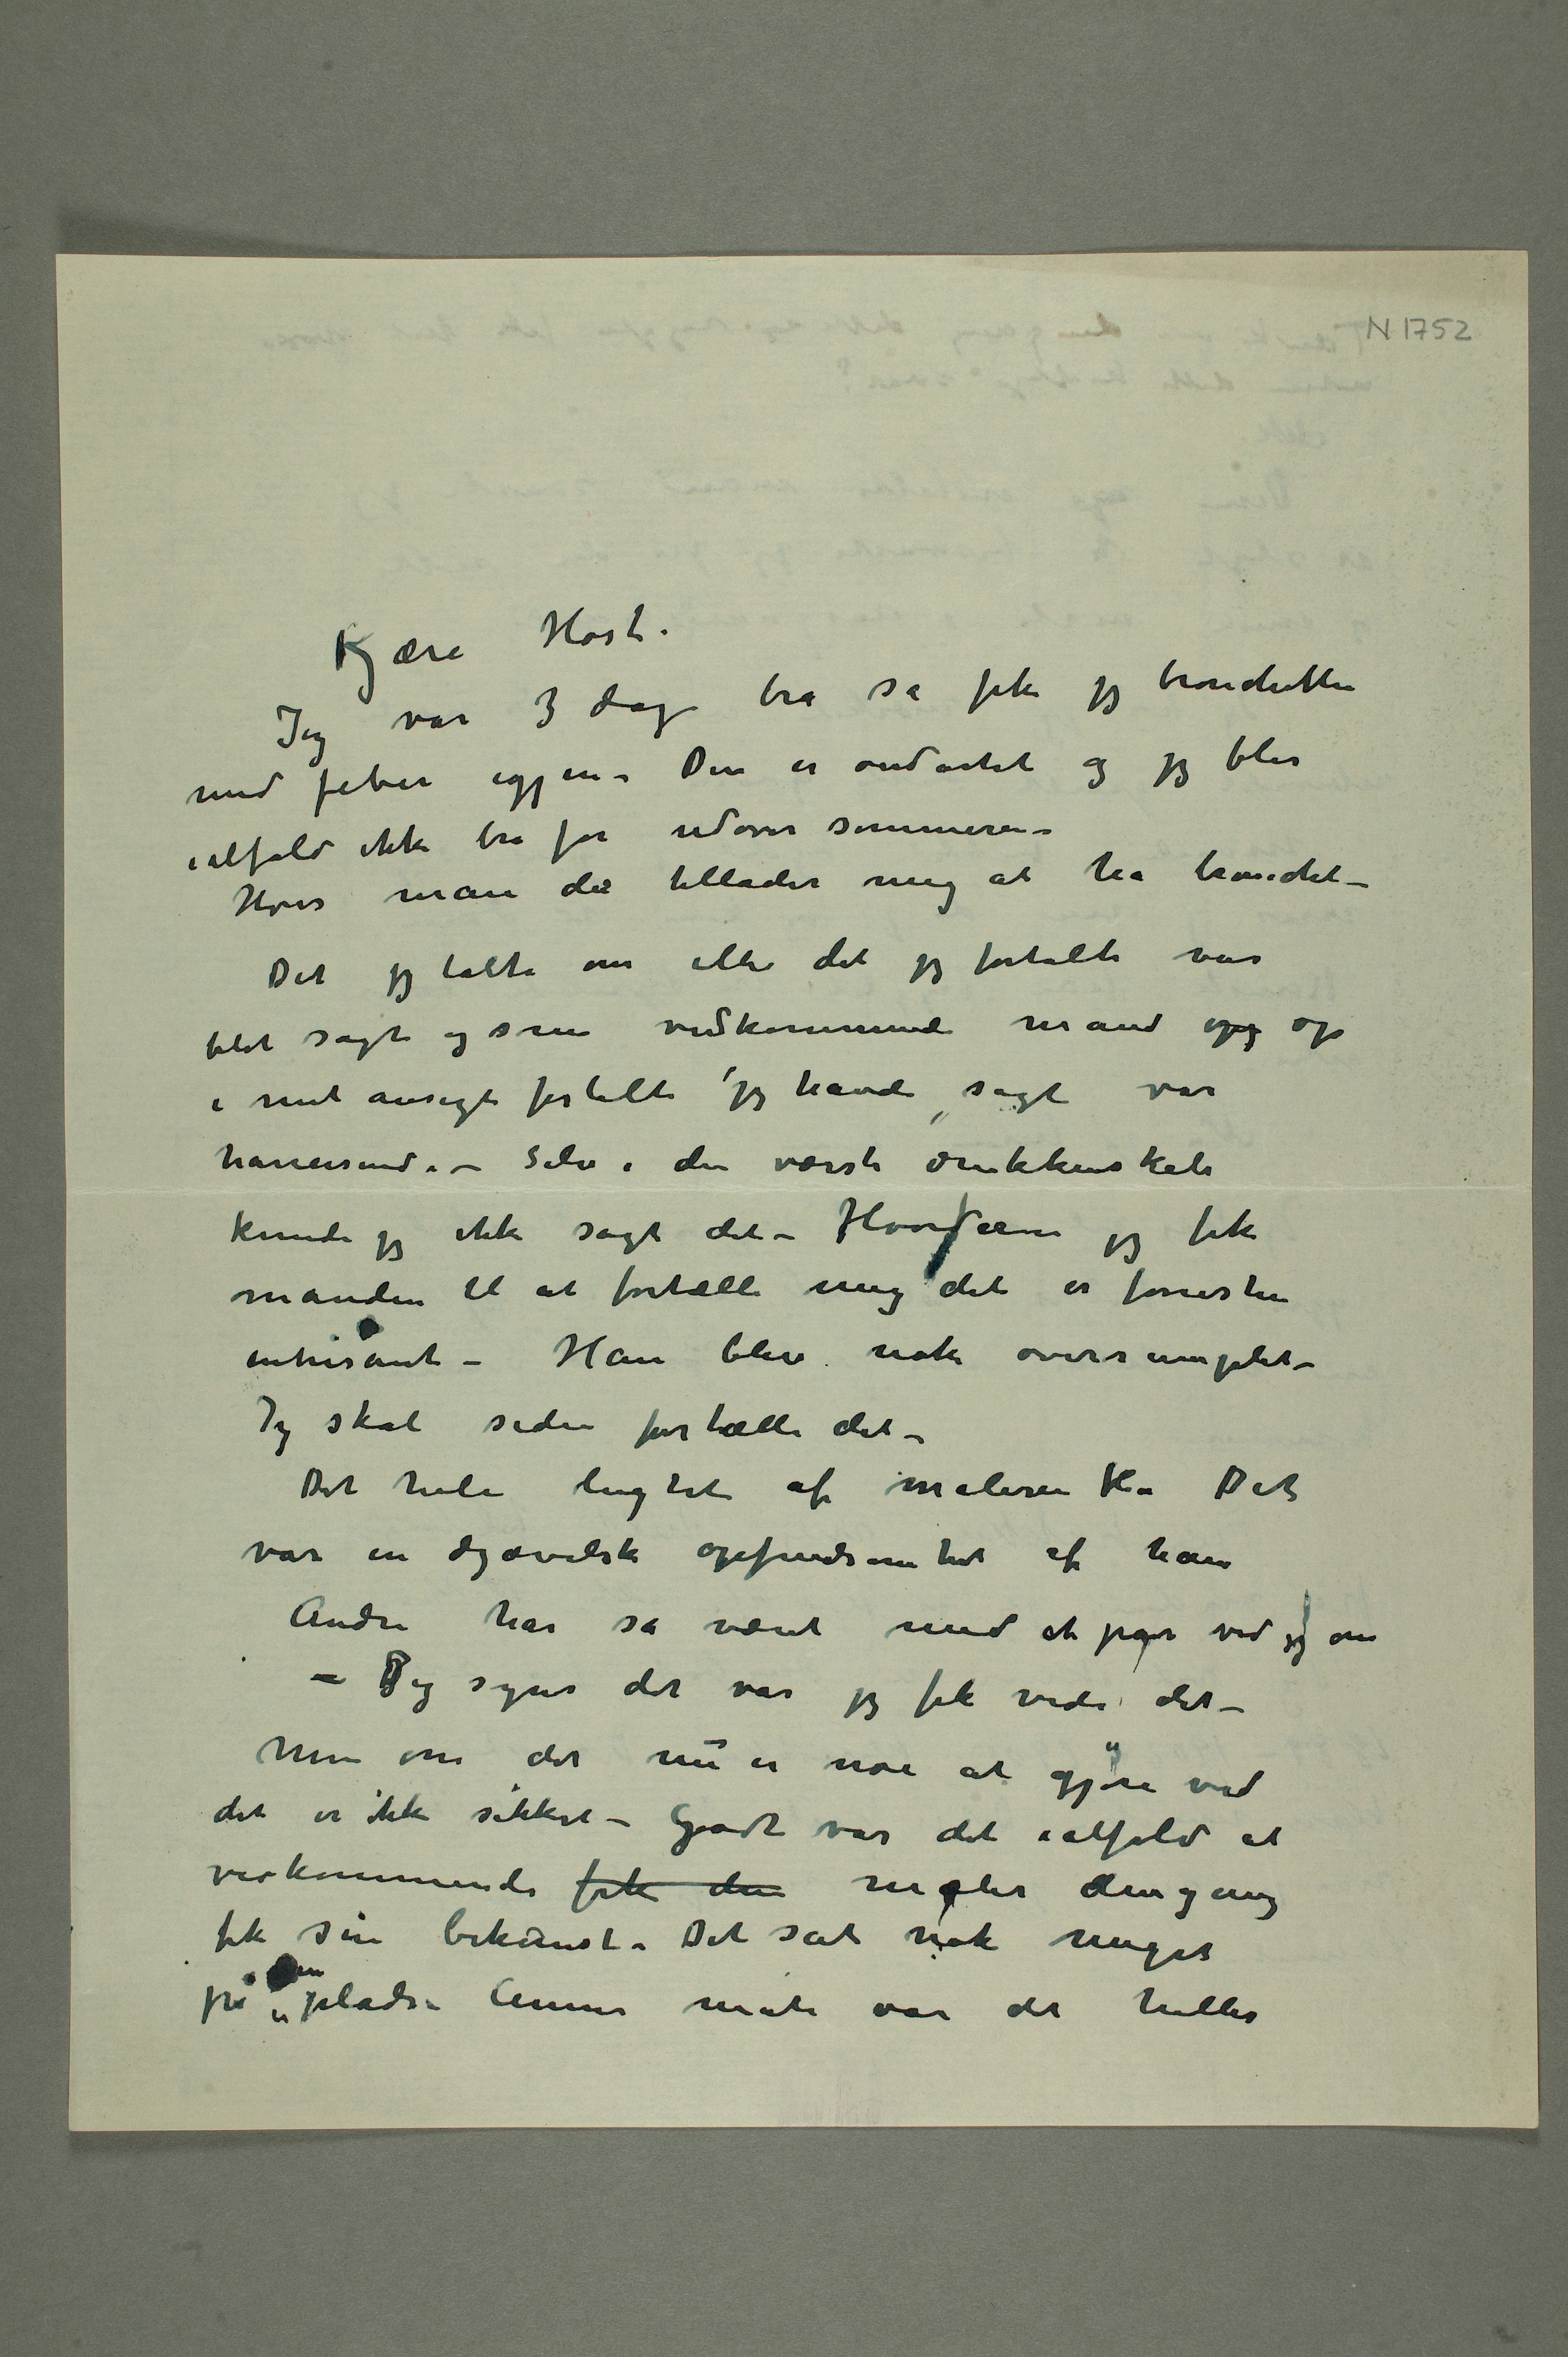 N 1752
Kjære Høst.
Jeg var 3 dage bra så fik jeg bronchitten
med feber igjen – Den er ondartet og jeg blir
ialfald ikke bra før udover sommeren –
Hvis man da tillader mig at ha bronchit –
Det jeg talte om eller det jeg fortalte var
blet sagt og som vedkommende mand op
i mit ansigt fortalte jeg havde sagt var
hårreisende – Selv i den værste drukkenskab
kunde jeg ikke sagt det – Hvordan jeg fik
manden til at fortælle mig det er forresten
intrisant – Han blev nok overrumplet –
Jeg skal siden fortælle det –
Det hele lugtet af maleren K – Det
var en djævelsk opfindsomhet af ham
Andre har så været med et par ved jeg om
– Jeg synes det var jeg fik vide det –
Men om der nu er noe at gjøre ved
det er ikke sikkert – Godt var det ialfald at
vedkommende fik den maler dengang
fik sin bekomst – Det sat nok meget
på en plads – Annen måte var det heller